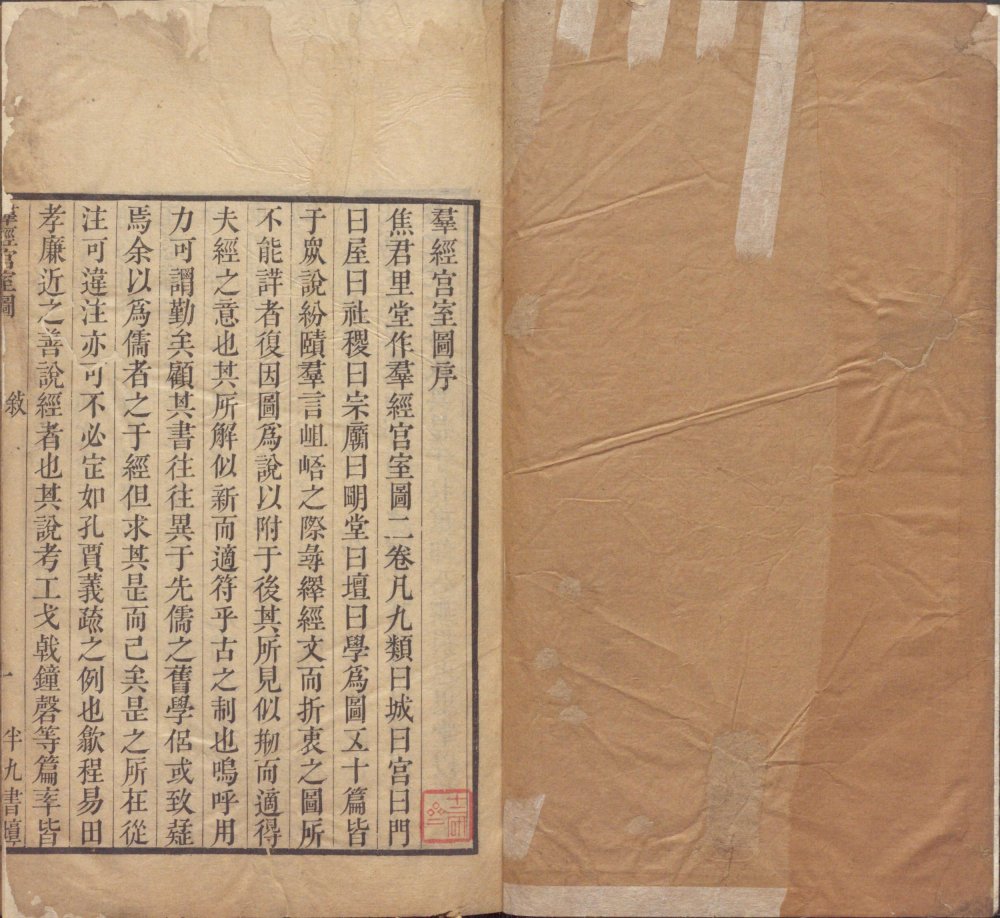 羣經宮室圖序
焦君里堂作羣經宮室圖二卷凡九類曰城曰宮曰門
曰屋曰社稷曰宗廟曰朙堂曰壇曰學爲圖五十篇皆
于眾說紛賾羣言岨峿之際尋繹經文而折衷之圖所
不能詳者復因圖爲說以附于後其所見似剏而適得
夫經之意也其所解似新而適符乎古之制也嗚呼用
力可謂勤矣顧其書往往異于先儒之舊學侶或致疑
焉余以爲儒者之于經但求其是而已矣是之所在從
注可違注亦可不必定如孔賈義疏之例也歙程易田
孝廉近之善說經者也其說考工戈戟鐘磬等篇率皆
羣經宮室圖
敘
一
半九書塾